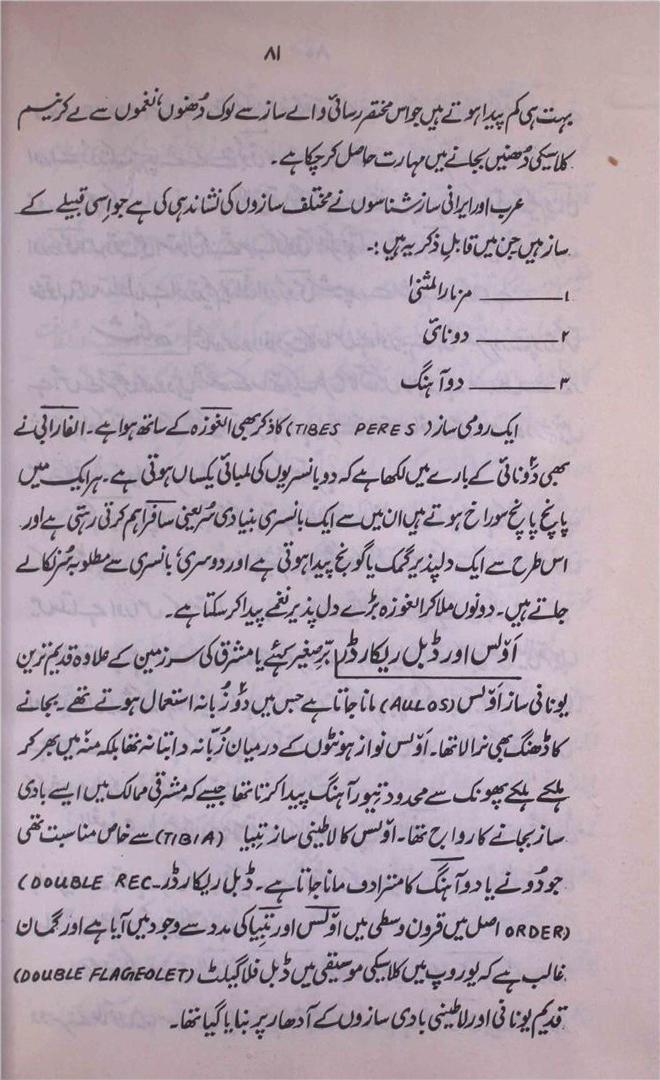 ۸۱
بہت ہی کم پیدا ہوتے ہیں جو اس مختصر رسائی والے ساز سے لوک دُھنوں، نغموں سے لے کر نیم
کلاسیکی دُھنیں بجانے میں مہارت حاصل کر چکا ہے۔
عرب اور ایرانی ساز شناسوں نے مختلف سازوں کی نشاندہی کی ہے جو اِسی قبیلے کے
ساز ہیں جن میں قابلِ ذکر یہ ہیں :۔
۱ــــــــ مزمار المثنیٰ
۲ــــــــ دونائی
۳ــــــــ دو آہنگ
ایک رومی ساز (TIBES PERES) کا ذکر بھی الغوزہ کے ساتھ ہوا ہے۔ الفارابی نے
بھی دُونائی کے بارے میں لکھا ہے کہ دو بانسریوں کی لمبائی یکساں ہوتی ہے۔ ہر ایک میں
پانچ پانچ سوراخ ہوتے ہیں ان میں سے ایک بانسری بنیادی سُر یعنی سا فراہم کرتی رہتی ہے اور
اس طرح سے ایک دلپذیر گمک یا گونج پیدا ہوتی ہے اور دوسری بانسری سے مطلوبہ سُر نکالے
جاتے ہیں۔ دونوں ملا کر الغوزہ بڑے دل پذیر نغمے پیدا کر سکتا ہے۔
اَوّلس اور ڈبل ریکارڈر برِّصغیر کہئے یا مشرق کی سرزمین کے علاوہ قدیم ترین
یونانی ساز اَوّلس (AULOS) مانا جاتا ہے جس میں دُو زُبانہ استعمال ہوتے تھے۔ بجانے
کا ڈھنگ بھی نرالا تھا۔ اَوّلس نواز ہونٹوں کے درمیان زُبانہ دابتا نہ تھا بلکہ منہ میں بھر کر
ہلکے ہلکے پھونک سے محدود تیور آہنگ پیدا کرتا تھا جیسے کہ مشرقی ممالک میں ایسے بادی
ساز بجانے کا رواج تھا۔ اوّلس کا لاطینی ساز تیبیا (TIBIA) سے خاص مناسبت تھی
جو دُونے یا دو آہنگ کا مترادف مانا جاتا ہے۔ ڈبل ریکارڈر (DOUBLE REC-
ORDER) اصل میں قرون وسطی میں اَوّلس اور تیبیا کی مدد سے وجود میں آیا ہے اور گمان
غالب ہے کہ یوروپ میں کلاسیکی موسیقی میں ڈبل فلاگیلٹ (DOUBLE FLAGEOLET)
قدیم یونانی اور لاطینی بادی سازوں کے آدھار پر بنایا گیا تھا۔